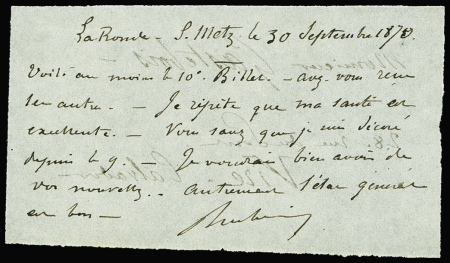 La Ronde - S. Metz le 30 Septembre 1870.
Voilà au moins le 10e Billet. - avez vous reçu
les autres. - Je répète que ma santé est
excellente. - Vous savez que je suis décoré
depuis le 9. - Je voudrais bien avoir de
vos nouvelles. - autrement l'état général
est bon -